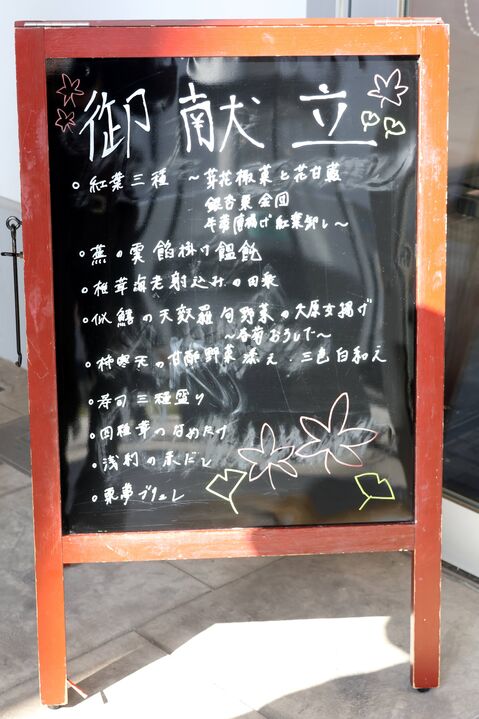 御献立
○ 紅葉三種 ～芽花椒菜と花甘藍
銀杏栗金団
牛蒡唐揚げ紅葉卸し～
○ 蕪の雲餡掛け饂飩
○ 椎茸海老射込みの田楽
○ 似鱚の天麩羅 旬野菜の大原女揚げ
～春菊おろし～
○ 柿寒天の甘酢野菜添え 三色白和え
○ 寿司三種盛り
○ 田種幸のなめたけ
○ 浅利の赤だし
○ 栗夢ブリュレ